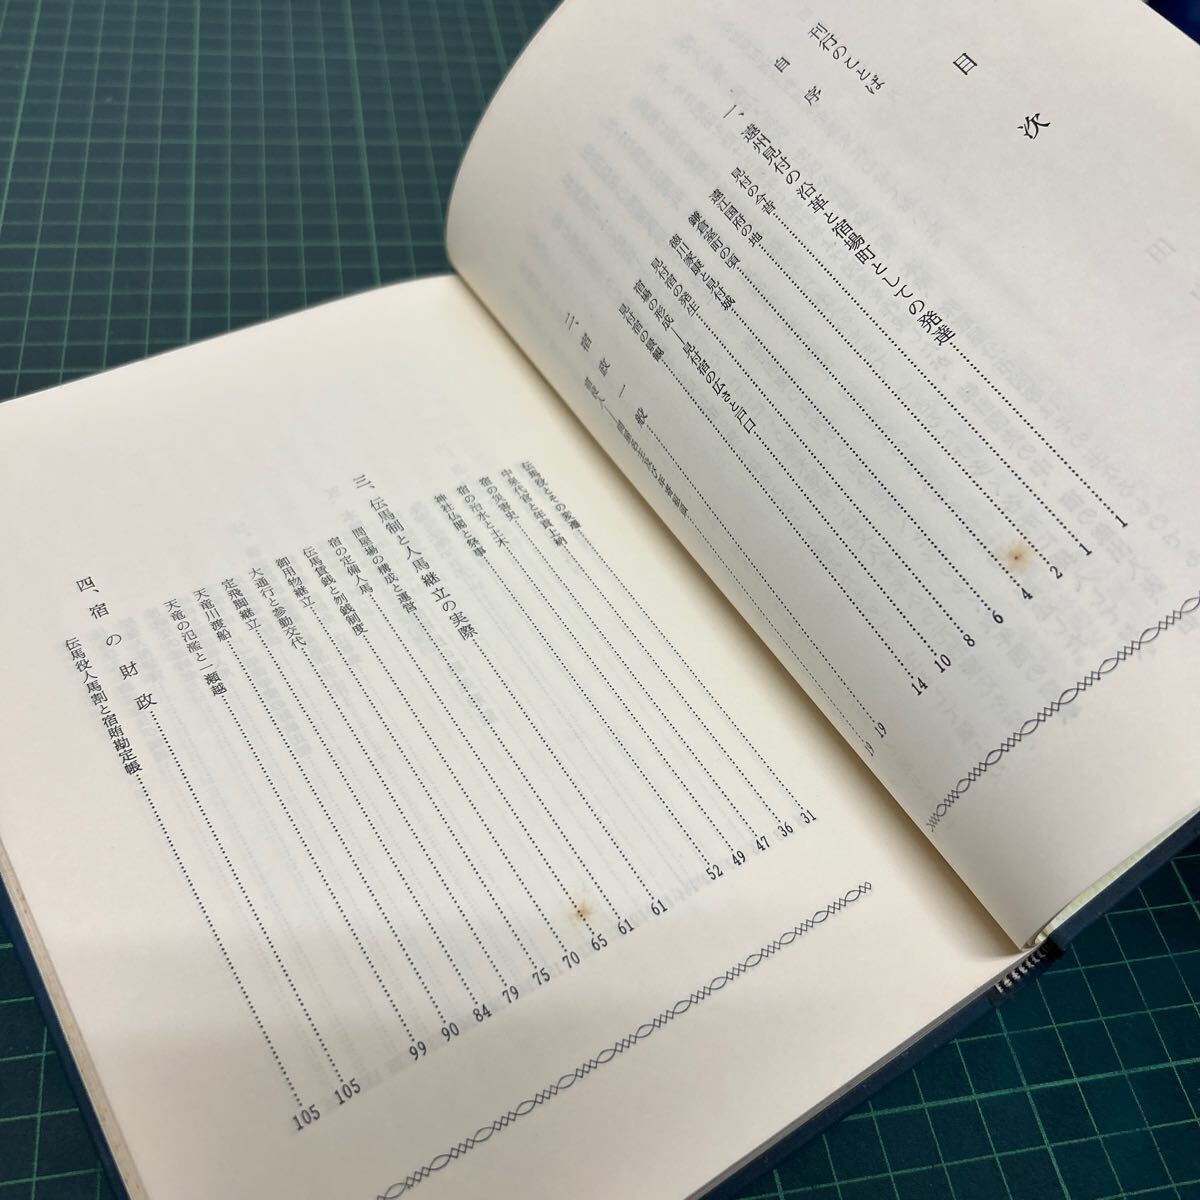 目次
刊行のことば
自序
一、遠州見付の沿革と宿場町としての発達 1
見付の今昔 1
遠江国府の地 2
鎌倉室町の頃 4
徳川家康と見付城 6
見付宿の発生 8
宿場の形成―見付宿の広さと戸口 10
見付宿の景観 14
二、宿政一般 19
19
伝馬役とその変遷 31
中泉代官と年貢上納 36
宿の災害史 47
宿の治水と土木 49
神社仏閣と祭事 52
三、伝馬制と人馬継立の実際 61
問屋場の構成と運営 61
宿の定備人馬 65
伝馬賃銭と刎銭制度 70
御用物継立 75
大通行と参勤交代 79
定飛脚継立 84
天竜川渡船 90
天竜の氾濫と一瀬越 99
四、宿の財政 105
伝馬役人馬割と宿賄勘定帳 105